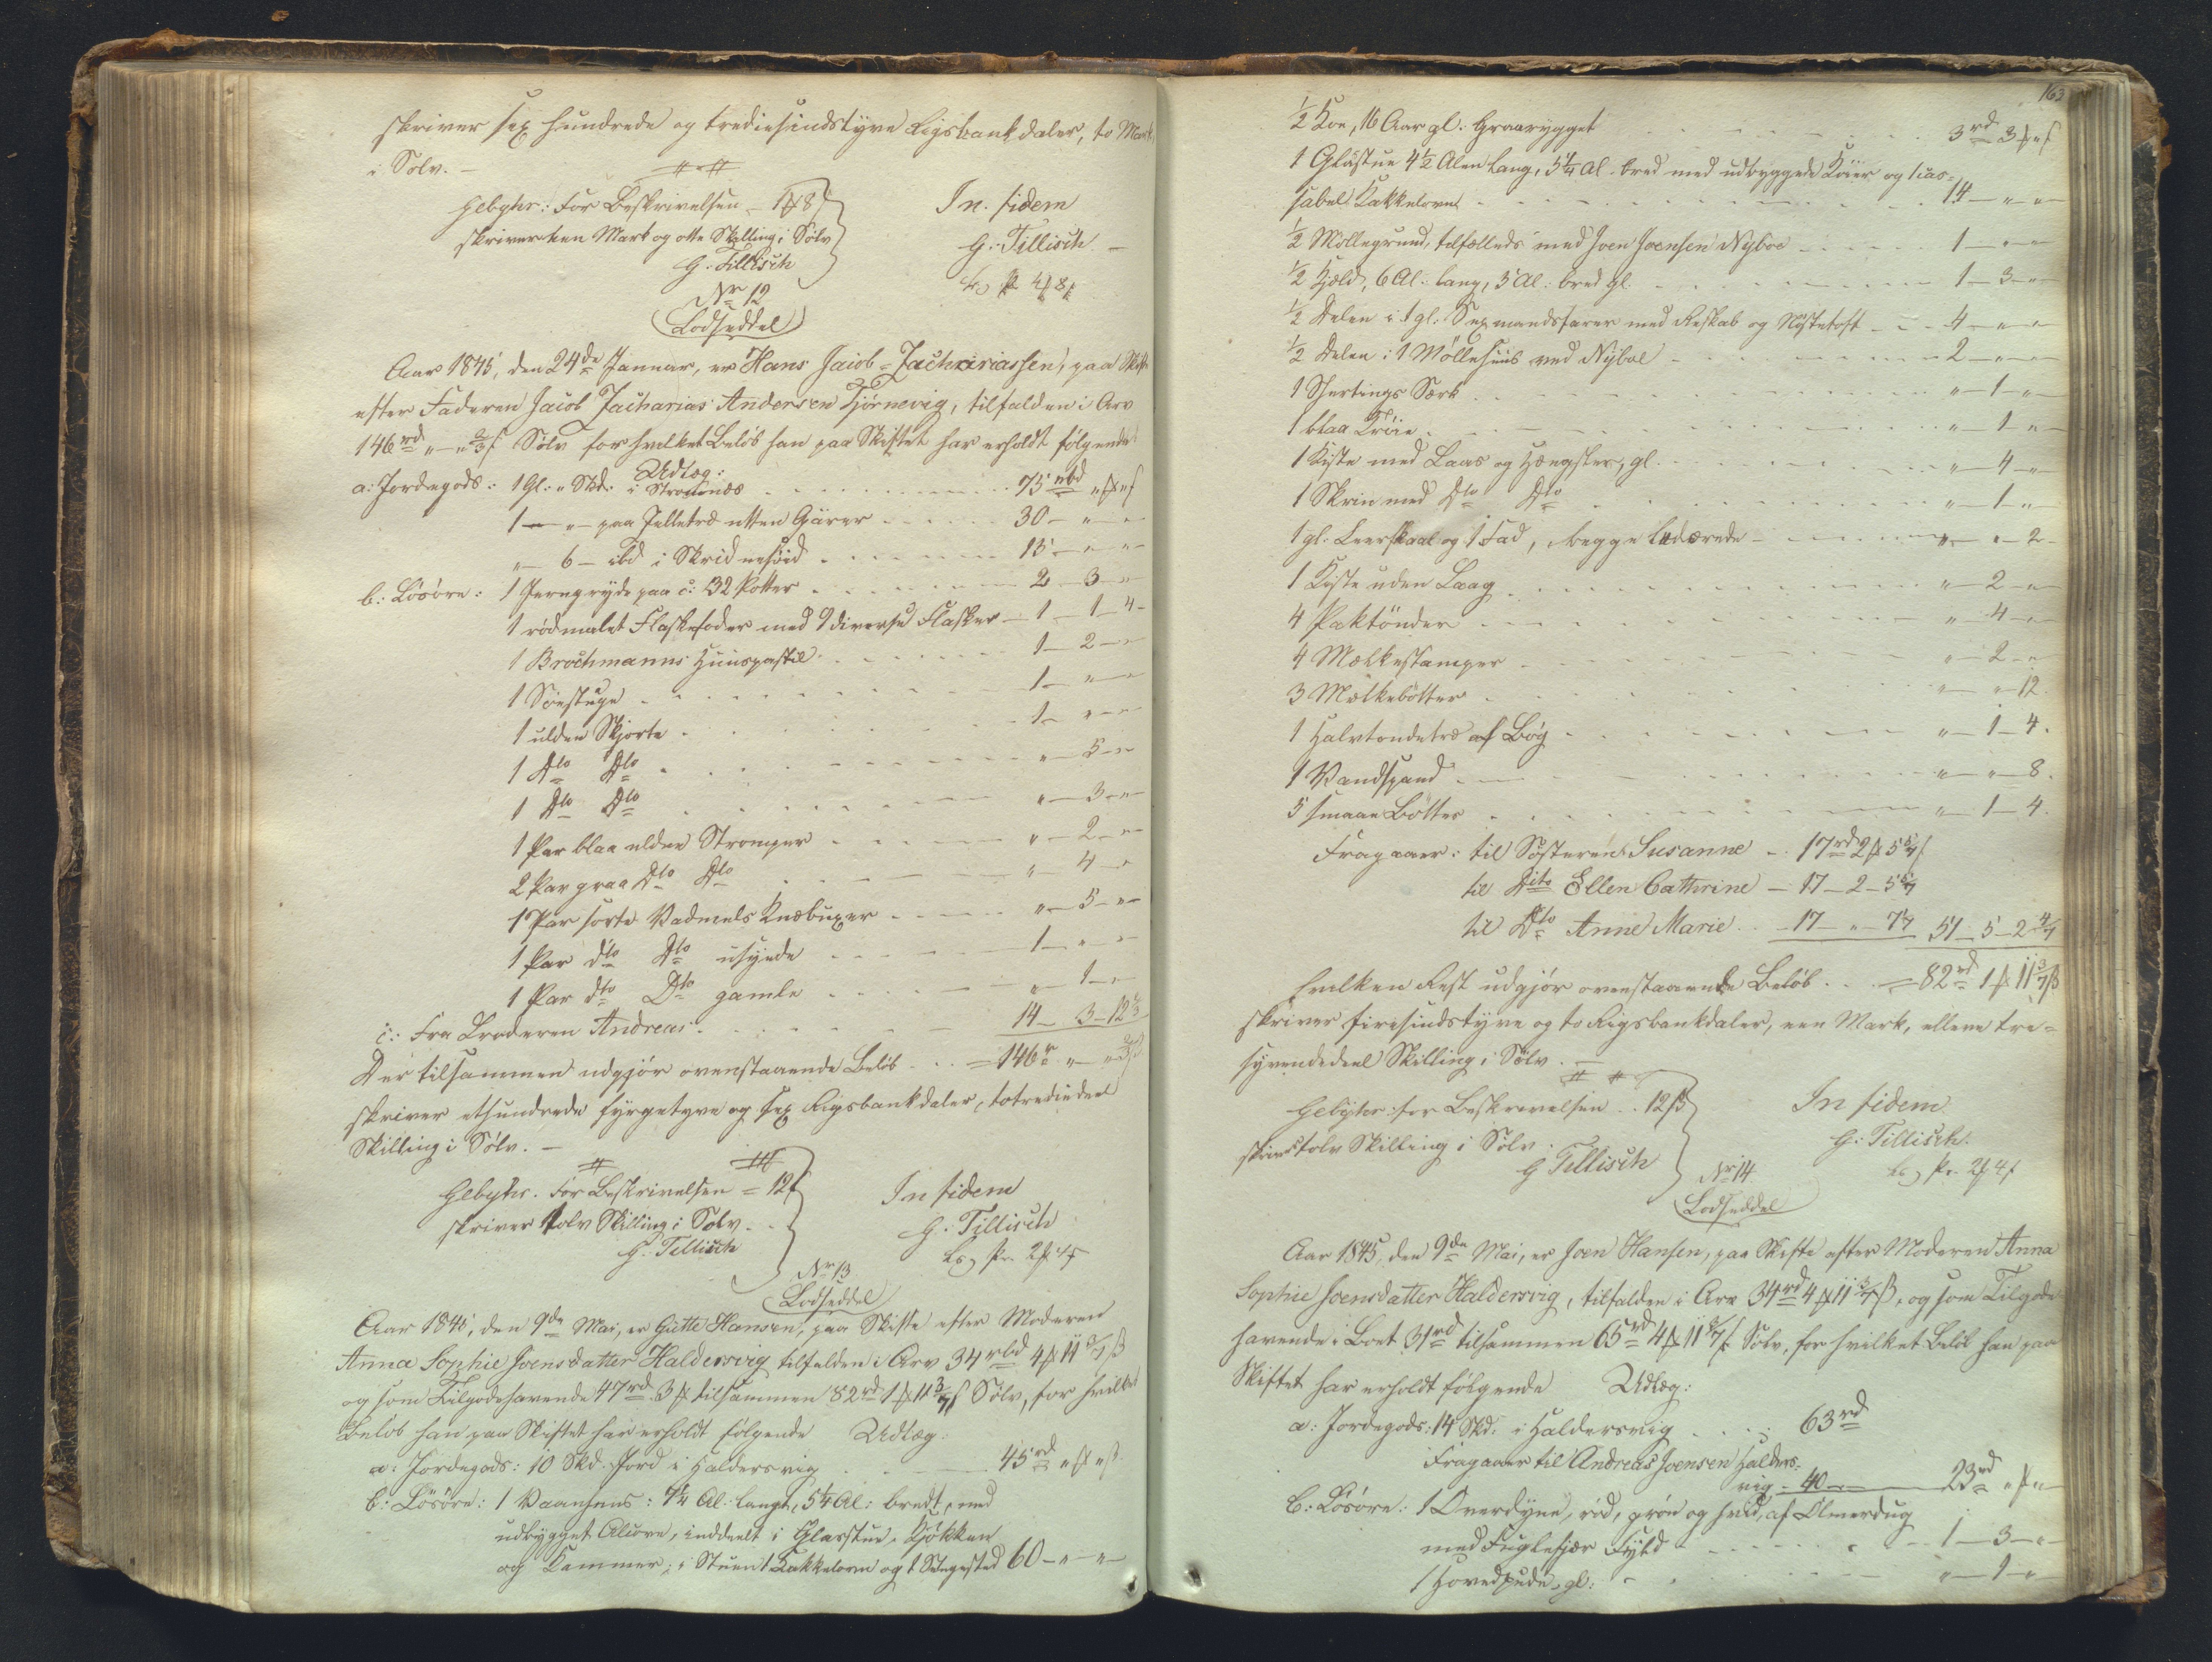 skriver sex hundrede og trediesindstyve Rigsbankdaler, to Mark
i Sølv. –
Gebyhr: For Beskrivelsen – 1 ₰ 8 ß
skriver een Mark og otte Skilling i Sølv
G. Tillisch
In fidem
G. Tillisch. –
Nr 12
Lodseddel
Aar 1845, den 24de Januar, er Hans Jacob Zachariassen, paa Skifte
efter Faderen Jacob Zacharias Andersen Tjørnevig, tilfalden i Arv
146 rd „ – „ 2/3 ß Sølv for hvilket Beløb han paa Skiftet har erholdt følgende
Udlæg:
a: Jordegods: 1 Gl: „ Skd: i Strømnæs 75 rbd „ ₰ „ ß
1 – „ – paa Selletræ utten Gærer 30 – „ – „
„ – 6 – ibd i Skridnesøid 15 – „ – „
b: Løsøre: 1 Jerngryde paa c: 32 Potter 2 – 3 – „
1 rødmalet Flaskefoder med 9 diverse Flasker – 1 – 1 – 4 –
1 Brochmanns Huuspostil 1 – 2 – „
1 Søestuge 1 – „ – „
1 ulden Skjorte 1 – „ – „
1 Dto Dto „ – 5 – „
1 Dto Dto „ – 3 – „
1 Par blaa uldne Strømper „ – 2 – „
2 Par graa Dto Dto „ – 4 – „
1 Par sorte Vadmels Knæbuxer „ – 5 – „
1 Par dto Dto usyede 1 – „ – „
1 Par dto Dto gamle „ – 1 – „
c: Fra Broderen Andreas 14 – 3 – 12 2/3
Der tilsammen udgjør ovenstaaende Beløb = 146 r „ – „ 2/3 ß
skriver ethundrede fyrgetyve og sex Rigsbankdaler, totrediedeel
Skilling i Sølv. –
Gebyhr. For Beskrivelsen = 12 ß
skriver tolv Skilling i Sølv
G. Tillisch
In fidem
G. Tillisch
Nr 13
Lodseddel
Aar 1845, den 9de Mai, er Gutte Hansen, paa Skifte efter Moderen
Anna Sophie Joensdatter Haldersvig tilfalden i Arv 34 rbd 4 ₰ 11 3/7 ß
og som Tilgodehavende 47 rd 3 ₰ tilsammen 82 rd 1 ₰ 11 3/7 ß Sølv, for hvilket
Beløb han paa Skiftet har erholdt følgende Udlæg.
a: Jordegods: 10 Skd. Jord i Haldersvig 45 rd „ ₰ „ ß
b: Løsøre: 1 Vaanhuus: 7 1/4 Al: langt, 5 1/4 Al: bredt, med
udbygget Alcove, inddeelt i Glasstue, Kjøkken
og Kammer; i Stuen 1 Kakkelovn og 1 Sengested 60 – „ – „
163
1/2 Koe, 16 Aar gl: Graarygget 3 rd 3 ₰ „ ß
1 Glasstue 4 1/2 Alen lang, 3 1/4 Al. bred med udbyggede Køier og 1 cas-
sabel Kakkelovn 14 – „ – „
1/2 Møllegrund, tilfælleds med Joen Joensen Nyboe 1 – „ – „
1/2 Hjeld, 6 Al: lang, 3 Al: bred gl. 1 – 3 – „
1/2 Delen i 1 gl: Sexmandsfarer med Redskab og Nøstetoft 4 – „ – „
1/2 Delen i 1 Møllehuus ved Nyboe 2 – „ – „
1 Shertings Særk „ – 1 – „
1 blaa Trøie „ – 1 – „
1 Kiste med Laas og Hængsler, gl. „ – 4 – „
1 Skrin med Dto Dto „ – 1 – „
1 gl. Leerskaal og 1 Fad, begge lædærede „ – „ – 2 –
1 Kiste uden Laag „ – 2 – „
4 Paktønder „ – 4 – „
4 Mælkestamper „ – 2 – „
3 Mælkebøtter „ – „ 12
1 Halvtøndetræ af Bøg „ – 1 – 4.
1 Vandspand „ – „ – 8.
5 smaae Bøtter „ – 1 – 4.
Fragaaer: til Søsteren Susanne 17 rd 2 ₰ 5 5/7 ß
til Dito Ellen Cathrine – 17 – 2 – 5 5/7
til Dto Anne Marie 17 – „ – 7 1/7 51 – 5 – 2 4/7
hvilken Rest udgjør ovenstaaende Beløb = 82 rd 1 ₰ 11 3/7 ß
skriver firesindstyve og to Rigsbankdaler, een Mark, elleve tre-
syvendedeel Skilling i Sølv. –
Gebyhr for Beskrivelsen 12 ß
skriver tolv Skilling i Sølv.
G Tillisch
In fidem
G: Tillisch.
Nr 14.
Lodseddel
Aar 1845, den 9de Mai, er Joen Hansen, paa Skifte efter Moderen Anna
Sophie Joensdatter Haldersvig, tilfalden i Arv 34 rd 4 ₰ 11 3/7 ß, og som Tilgode-
havende i Boet 31 rd tilsammen 65 rd 4 ₰ 11 3/7 ß Sølv, for hvilket Beløb han paa
Skiftet har erholdt følgende Udlæg:
a: Jordegods: 14 Skd: i Haldersvig 63 rd
Fragaaer til Andreas Joensen Halders-
vig – 40 – 23 rd „ ₰ „
b: Løsøre: 1 Overdyne, rød, grøn og hvid, af Olmerdug
med Fuglefjær Fyld 1 – 3 – „
1 Hovedpude, gl: „ – 1 – „